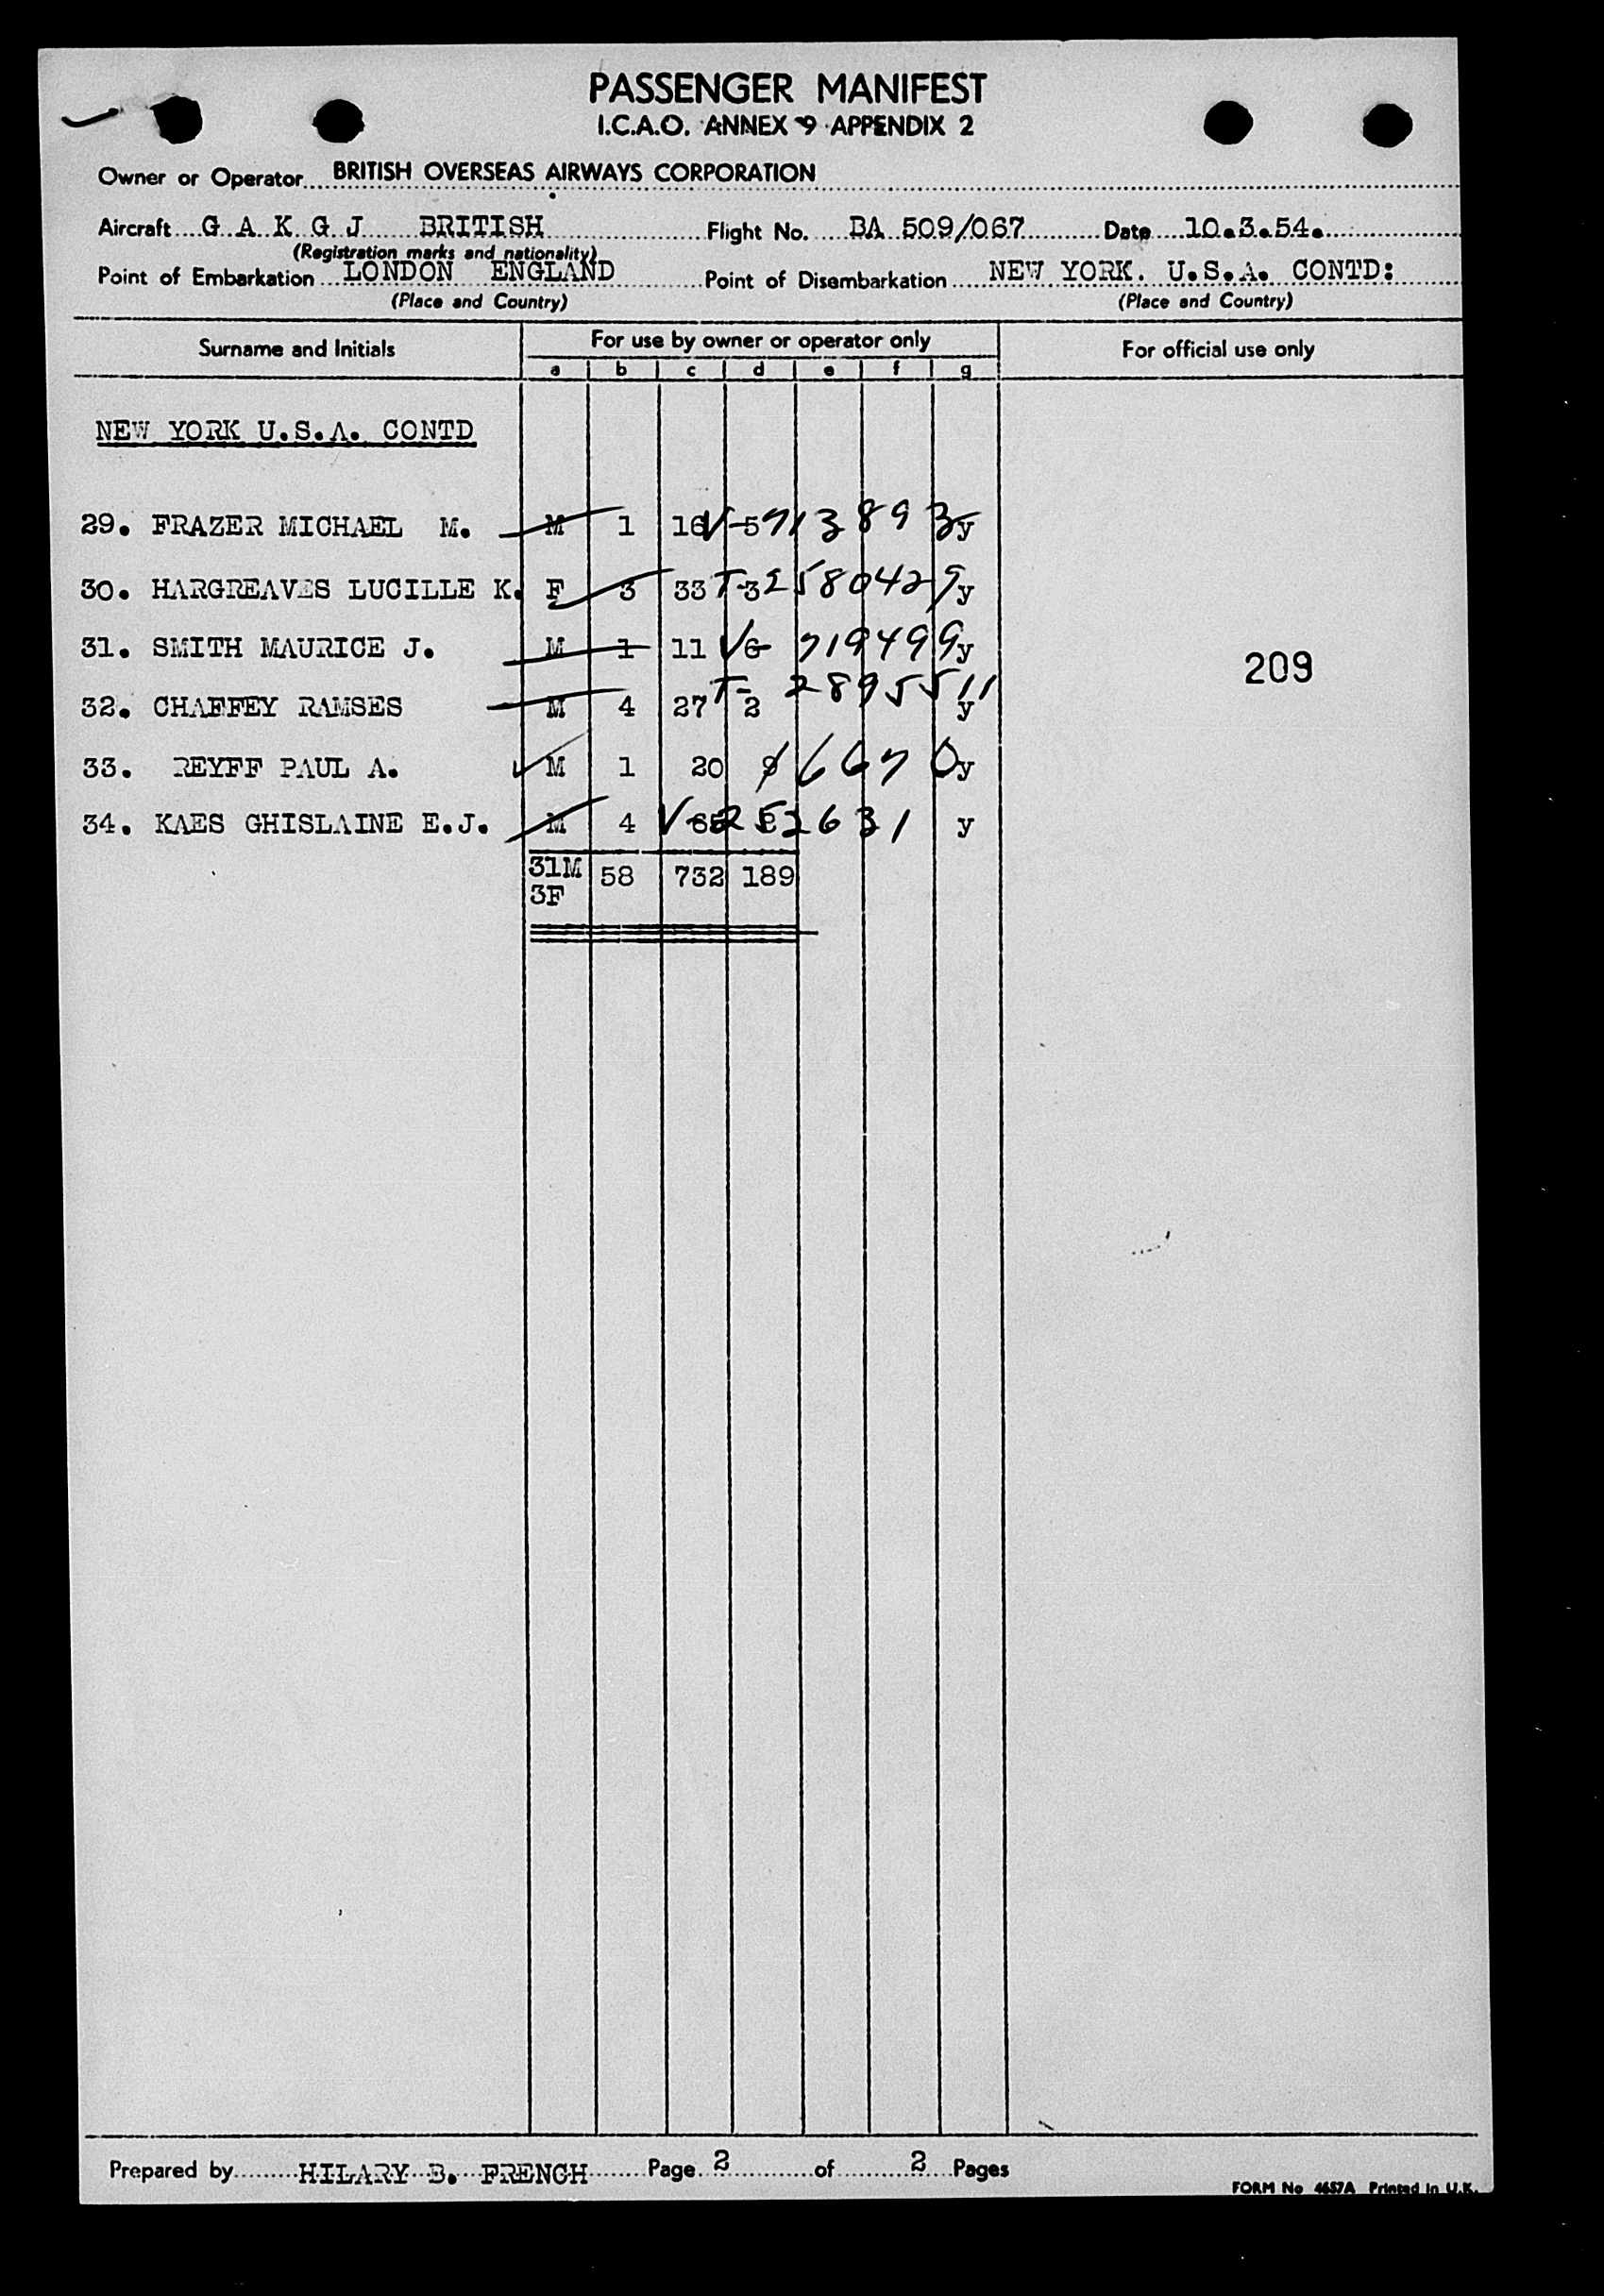 PASSENGER MANIFEST
I.C.A.O. ANNEX 9 APPENDIX 2
Owner or Operator BRITISH OVERSEAS AIRWAYS CORPORATION
Aircraft G A K G J BRITISH Flight No. BA 509/067 Date 10.3.54.
(Registration marks and nationality)
Point of Embarkation LONDON ENGLAND Point of Disembarkation NEW YORK. U.S.A. CONTD:
(Place and Country) (Place and Country)
Surname and Initials For use by owner or operator only For official use only
a b c d e f g
NEW YORK U.S.A. CONTD
29. FRAZER MICHAEL M. M 1 16 V-5713893 y
30. HARGREAVES LUCILLE K. F 3 33 T-3 2580429 y
31. SMITH MAURICE J. M 1 11 V 6 719499 y
209
32. CHAFFEY RAMSES M 4 27 2 T-2895511 y
33. REYFF PAUL A. M 1 20 9 6670 y
34. KAES GHISLAINE E.J. M 4 V-252631 y
31M 58 732 189
3F
Prepared by HILARY B. FRENCH Page 2 of 2 Pages
FORM No 4657A Printed in U.K.